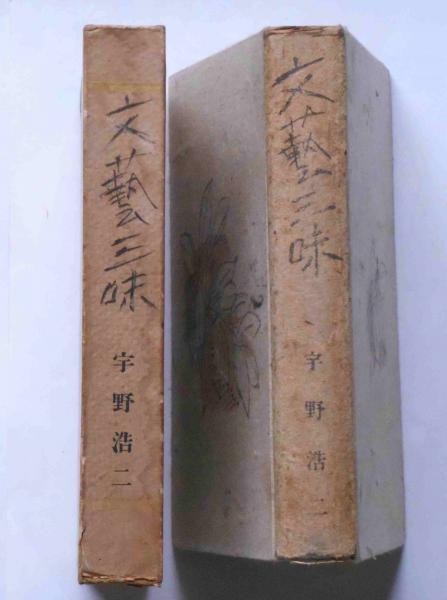 文藝三味
宇野浩二
文藝三味
宇野浩二